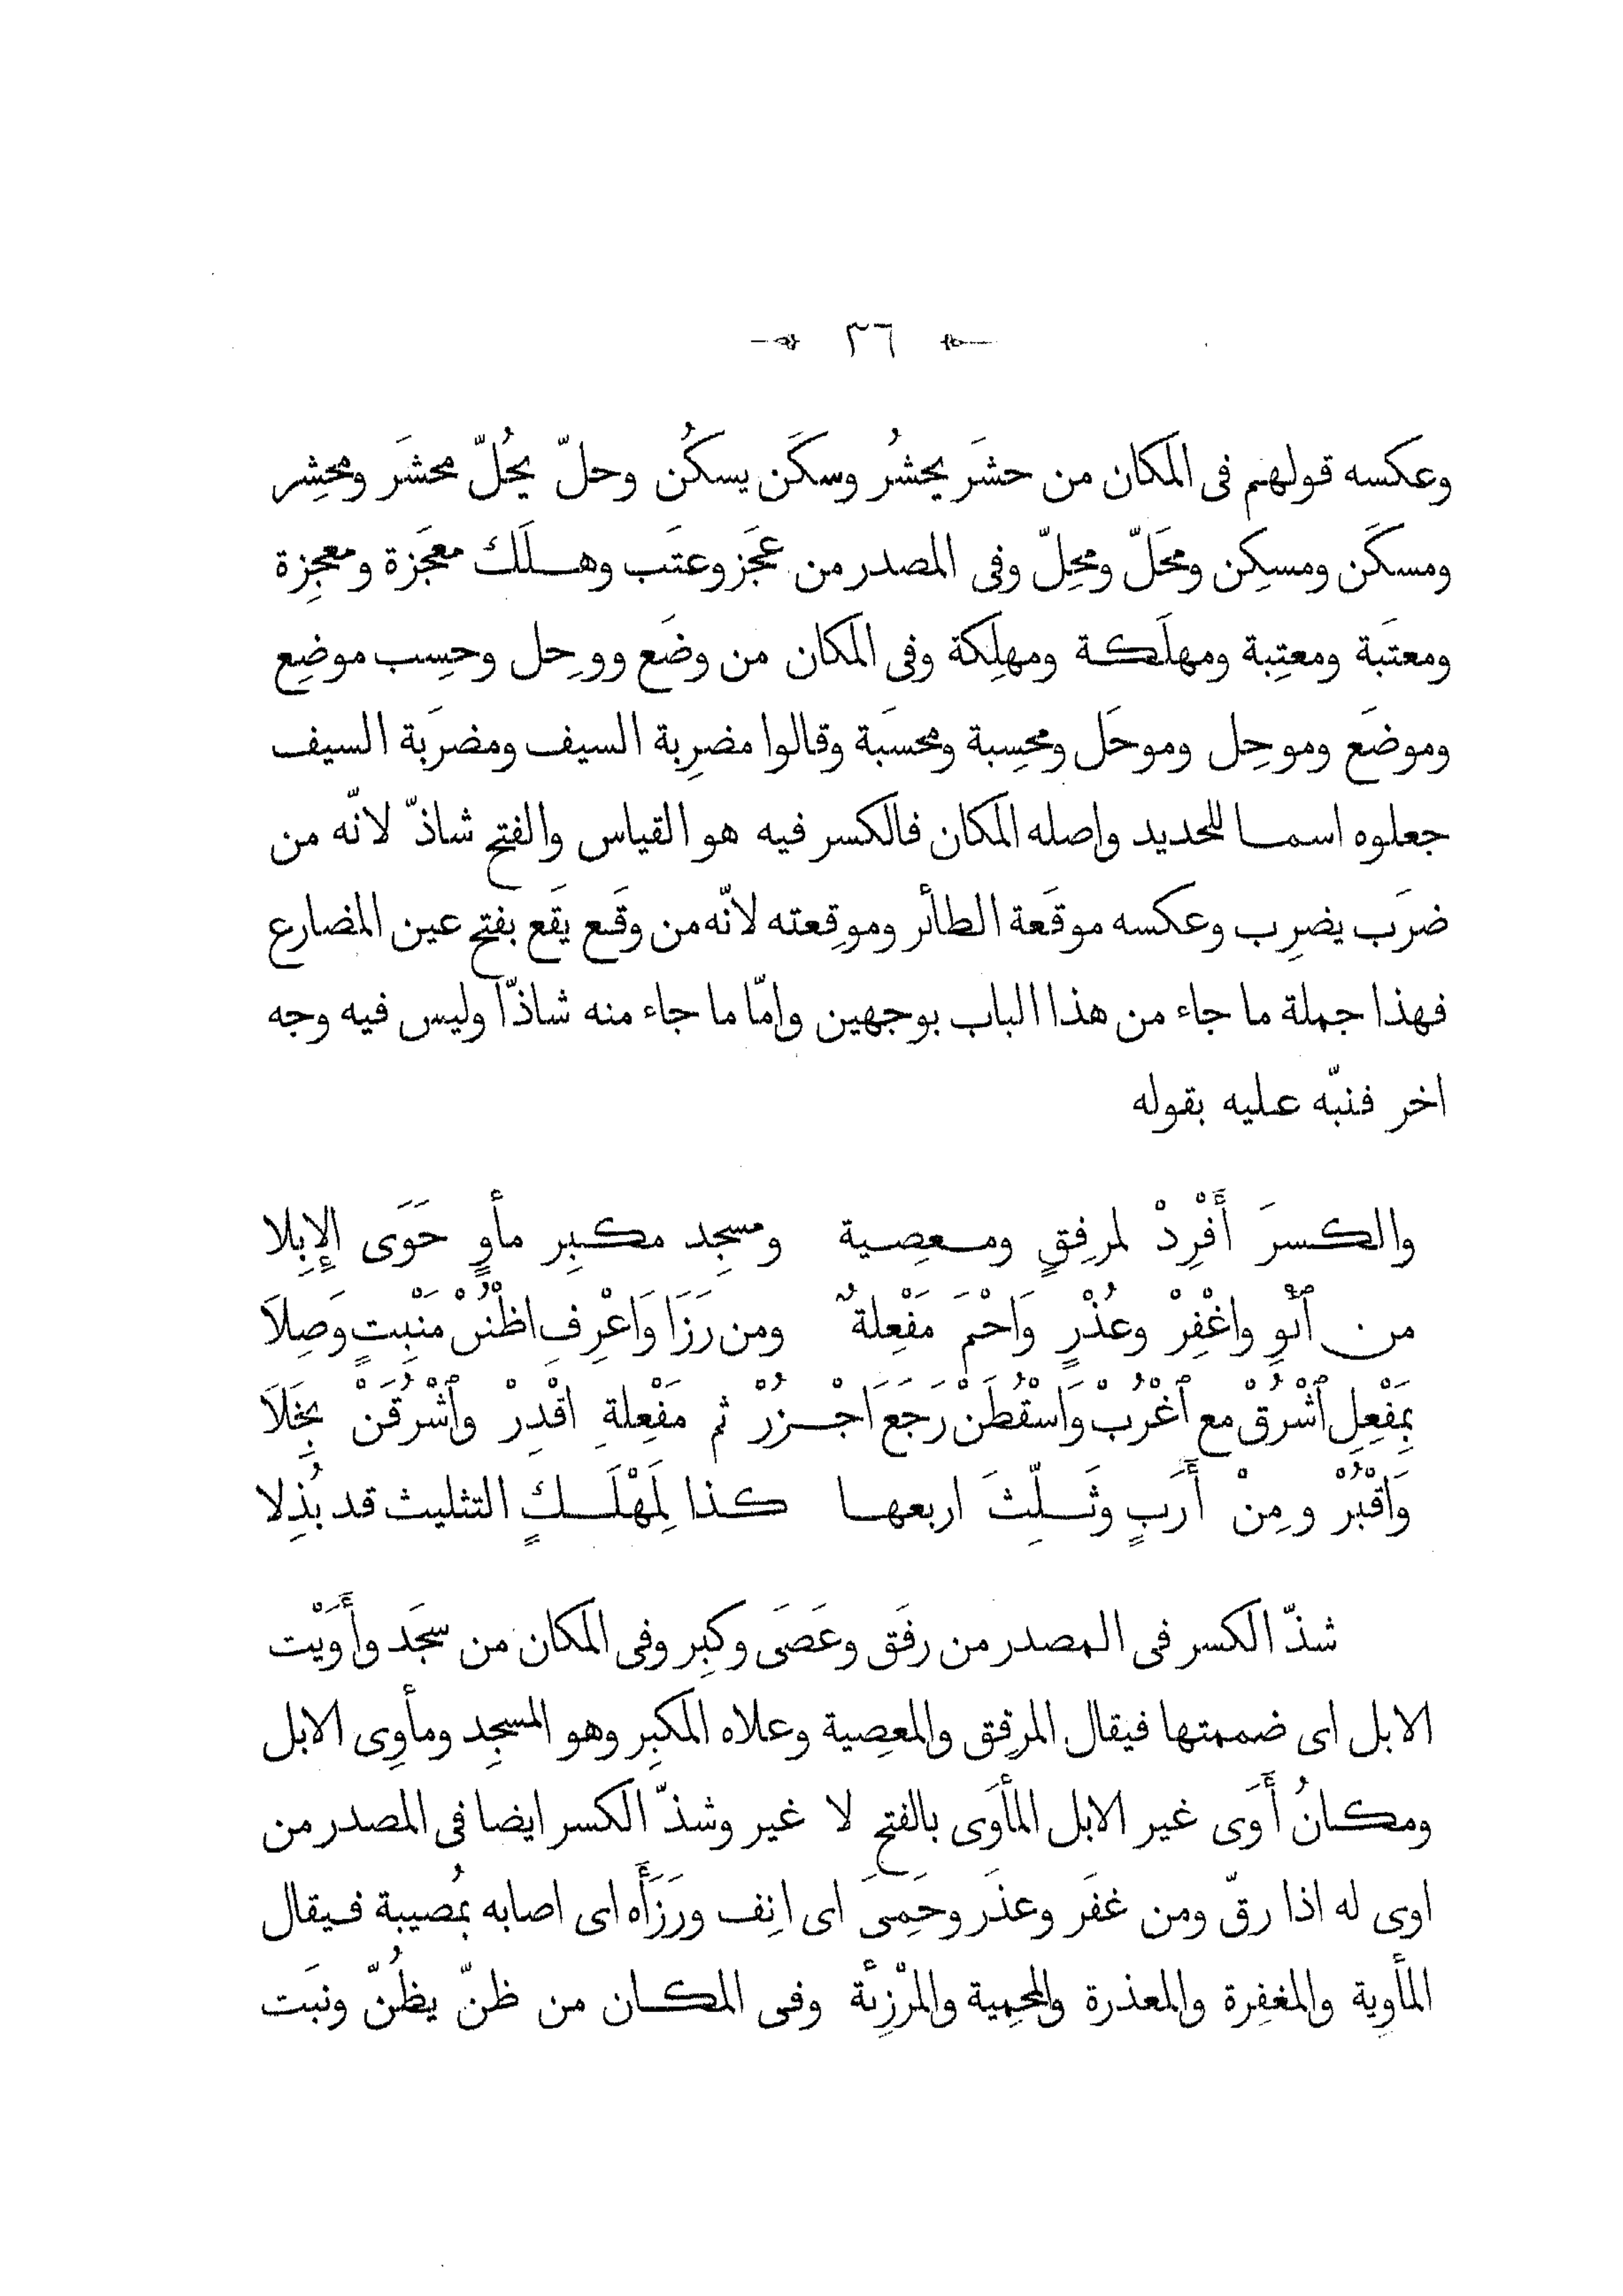 ٣٦
وعكسه قولهم فى المكان من حشَر يحشُر وسكَن يسكُن وحلّ يحُلّ محشَر ومحشِر
ومسكَن ومسكِن ومحَلّ ومحِلّ وفى المصدر من عجَز وعتَب وهلَك معجَزة ومعجِزة
ومعتَبة ومعتِبة ومهلَكة ومهلِكة وفى المكان من وضَع ووحِل وحسِب موضِع
وموضَع وموحِل وموحَل ومحسِبة ومحسَبة وقالوا مضرِبة السيف ومضرَبة السيف
جعلوه اسما للحديد واصله المكان فالكسر فيه هو القياس والفتح شاذّ لانّه من
ضرَب يضرِب وعكسه موقَعة الطائر وموقِعته لانّه من وقَع يقَع بفتح عين المضارع
فهذا جملة ما جاء من هذا الباب بوجهين وامّا ما جاء منه شاذّا وليس فيه وجه
اخر فنبّه عليه بقوله
والكسرَ أَفْرِدْ لمرفِقٍ ومعصِية ومسجِد مكبِر مأوٍ حَوَى الإِبِلا
من ٱئْوِ واغْفِرْ وعُذْرٍ وَاحْمَ مَفْعِلةٌ ومن رَزَا وَاعْرِفِ اظْنُنْ مَنْبِتٍ وَصِلَا
بِمَفْعِلِ ٱشْرُقْ مع ٱغْرُبْ وَاسْقُطَنْ رَجَعَ اجْزُرْ ثم مَفْعِلةِ اقْدِرْ وٱشْرُقَنْ بِخَلَا
وَاقْبُرْ ومِنْ أَرَبٍ وثَلِّثَ اربعها كذا لِمَهْلَكٍ التثليث قد بُذِلا
شذّ الكسر فى المصدر من رفَق وعَصَى وكبِر وفى المكان من سجَد وأَوَيْت
الابل اى ضممتها فيقال المرفِق والمعصِية وعلاه المكبِر وهو المسجِد ومأوِى الابل
ومكانُ أَوَى غير الابل المأوَى بالفتح لا غير وشذّ الكسر ايضا فى المصدر من
اوى له اذا رقّ ومن غفَر وعذَر وحَمِىَ اى انِف ورَزَأَه اى اصابه بمُصيبة فيقال
المأوِية والمغفِرة والمعذرة والمحمِية والمرْزِئة وفى المكان من ظنّ يظُنّ ونبَت